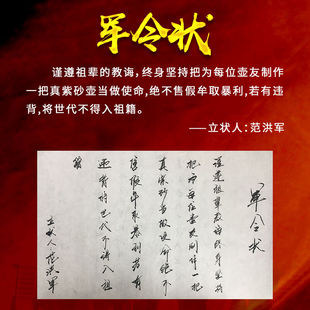 军令状
谨遵祖辈的教诲，终身坚持把为每位壶友制作
一把真紫砂壶当做使命，绝不售假牟取暴利，若有违
背，将世代不得入祖籍。
——立状人：范洪军
《军令状》
谨遵祖辈教诲终身坚持
把为每位壶友制作一把
真紫砂壶当做使命绝不
售假牟取暴利若有
违背将世代不得入祖
籍
立状人：范洪军